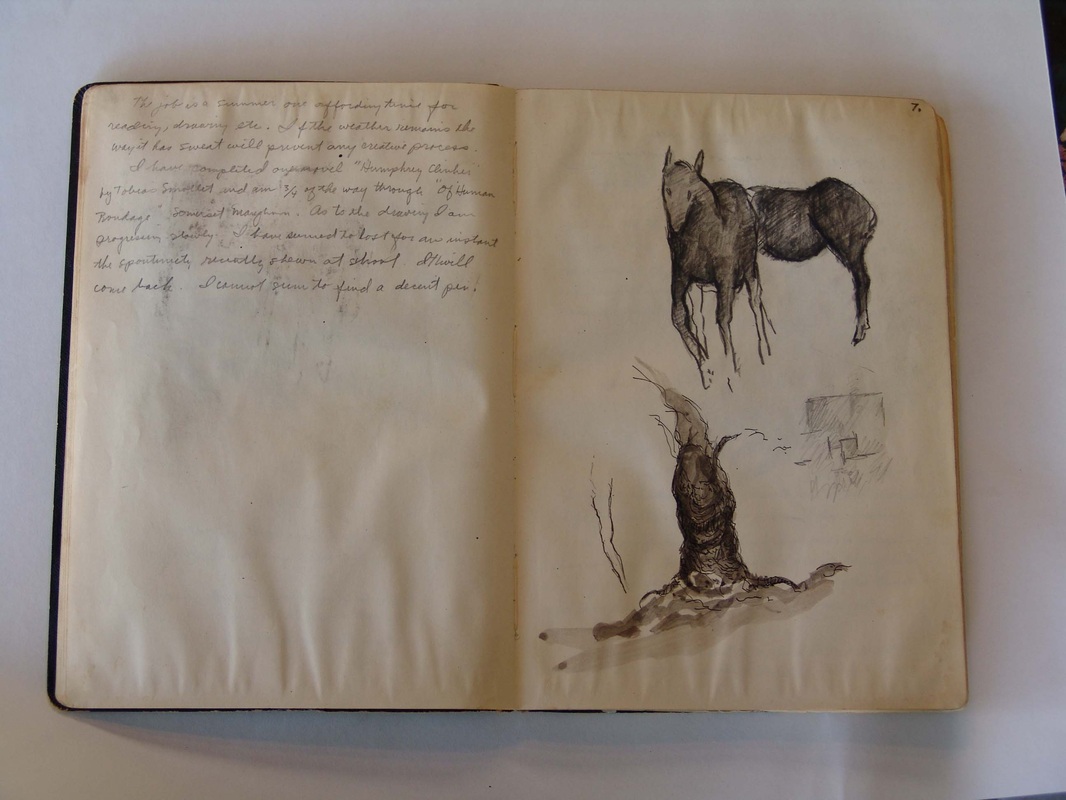 The job is a summer one affording time for
reading, drawing etc. If the weather remains the
way it has sweat will prevent any creative process.
I have completed one novel "Humphrey Clinker"
by Tobias Smollet and am 3/4 of the way through "Of Human
Bondage" Somerset Maugham. As to the drawing I am
progressing slowly. I have seemed to lost for an instant
the spontunity usually shown at school. It will
come back. I cannot seem to find a decent pen.
7.